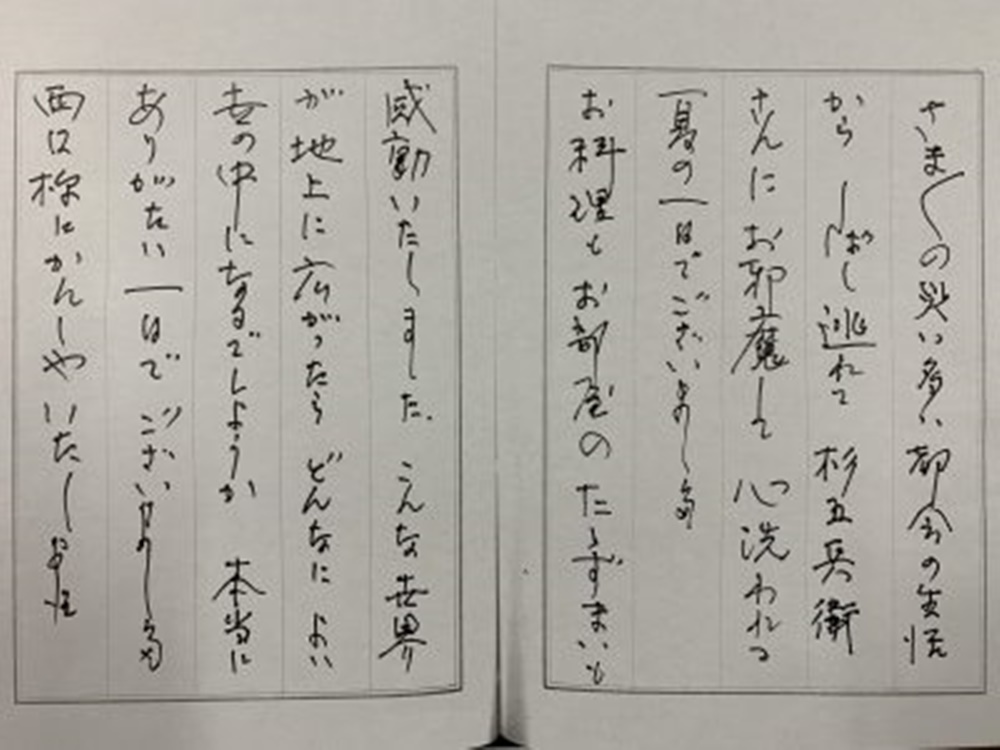 さま〱の災い多い都会の生活
からしばし逃れて杉五兵衛
さんにお邪魔して心洗われつ
夏の一日でございました
お料理もお部屋のたゝずまいも
感動いたしました。こんな世界
が地上に広がったらどんなによい
世の中になるでしょうか 本当に
ありがたい一日でございました
西口様にかんしゃいたします